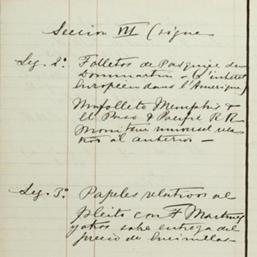 Sección VII (sigue
Leg. 2º. Folletos de Pasquier de
Dommartin - (L'interet
Européen dans l'Amérique)
Un folleto Memphis &
El Paso & Pacific R R
Moniteur universel rela
tivos al anterior -
Leg. 3º. Papeles relativos al
pleito con F Martinez
y otros sobre entrega del
precio de